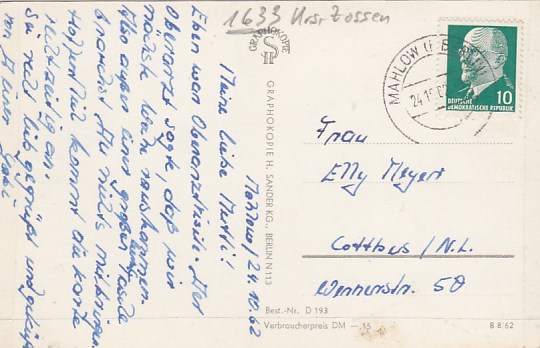 1633 Krs. Zossen
Mahlow/24.10.62
Meine liebe Mutti!
Eben war Oberarztvisite. Der
Oberarzt sagte, daß wir
nächste Woche rauskommen.
Also außer einer großen Taube
brauchst Du nichts mitbringen.
heute
Hoffentlich kommt die Karte
rechtzeitig an.
Sei recht lieb gegrüßt und geküßt
von Deiner
GRAPHOKOPIE
GRAPHOKOPIE H. SANDER KG., BERLIN N113
MAHLOW
24.10.62
DEUTSCHE
DEMOKRATISCHE REPUBLIK
10
Frau
Elly Meyert
Cottbus/N.L.
Wernerstr. 50
Best.-Nr. D 193
Verbraucherpreis DM —.15
B 8/62